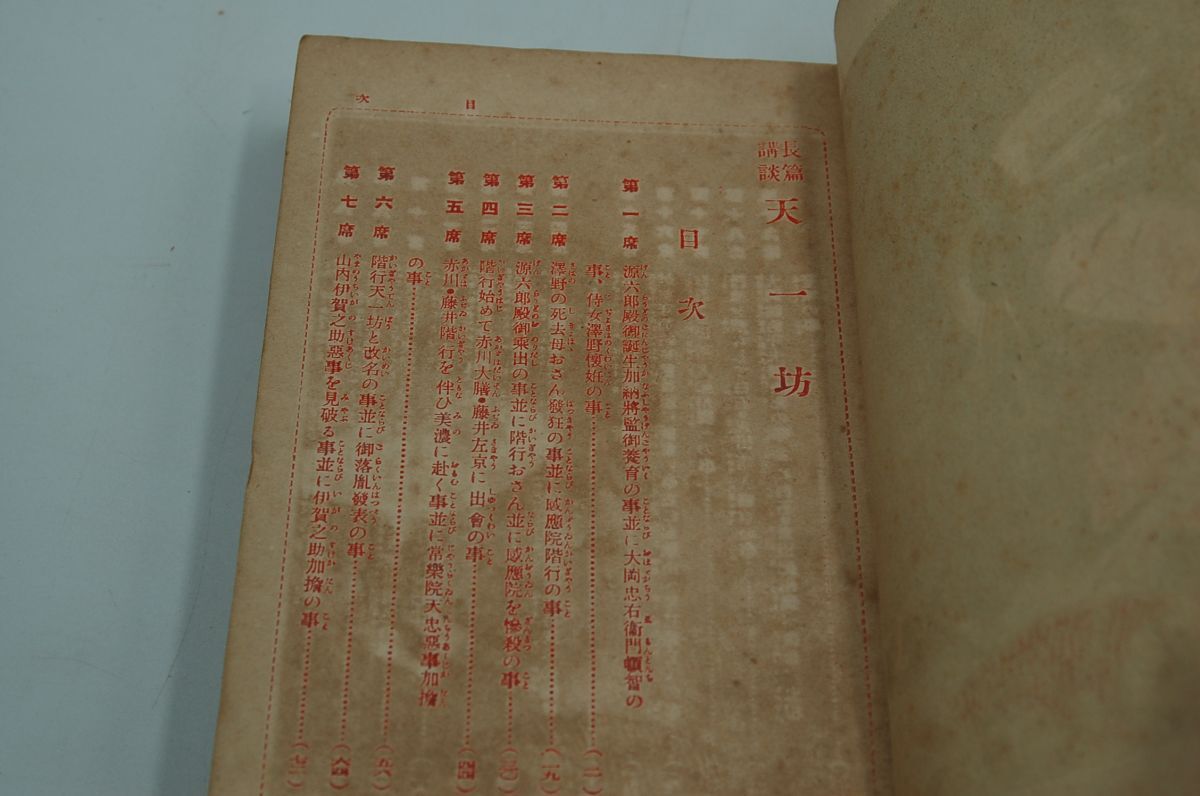 長篇講談 天一坊
目次
第一席 源六郎殿御誕生加納將監御養育の事並に大岡忠右衞門頓智の
事、侍女澤野懷姙の事……(一)
第二席 澤野の死去母おさん發狂の事並に感應院階行の事……(一九)
第三席 源六郎殿御乘出の事並に階行おさん並に感應院を慘殺の事……
第四席 階行始めて赤川大膳・藤井左京に出會の事……(四四)
第五席 赤川・藤井階行を伴ひ美濃に赴く事並に常樂院天忠惡事加擔
の事……(五六)
第六席 階行天一坊と改名の事並に御落胤發表の事……(六四)
第七席 山内伊賀之助惡事を見破る事並に伊賀之助加擔の事……
目次